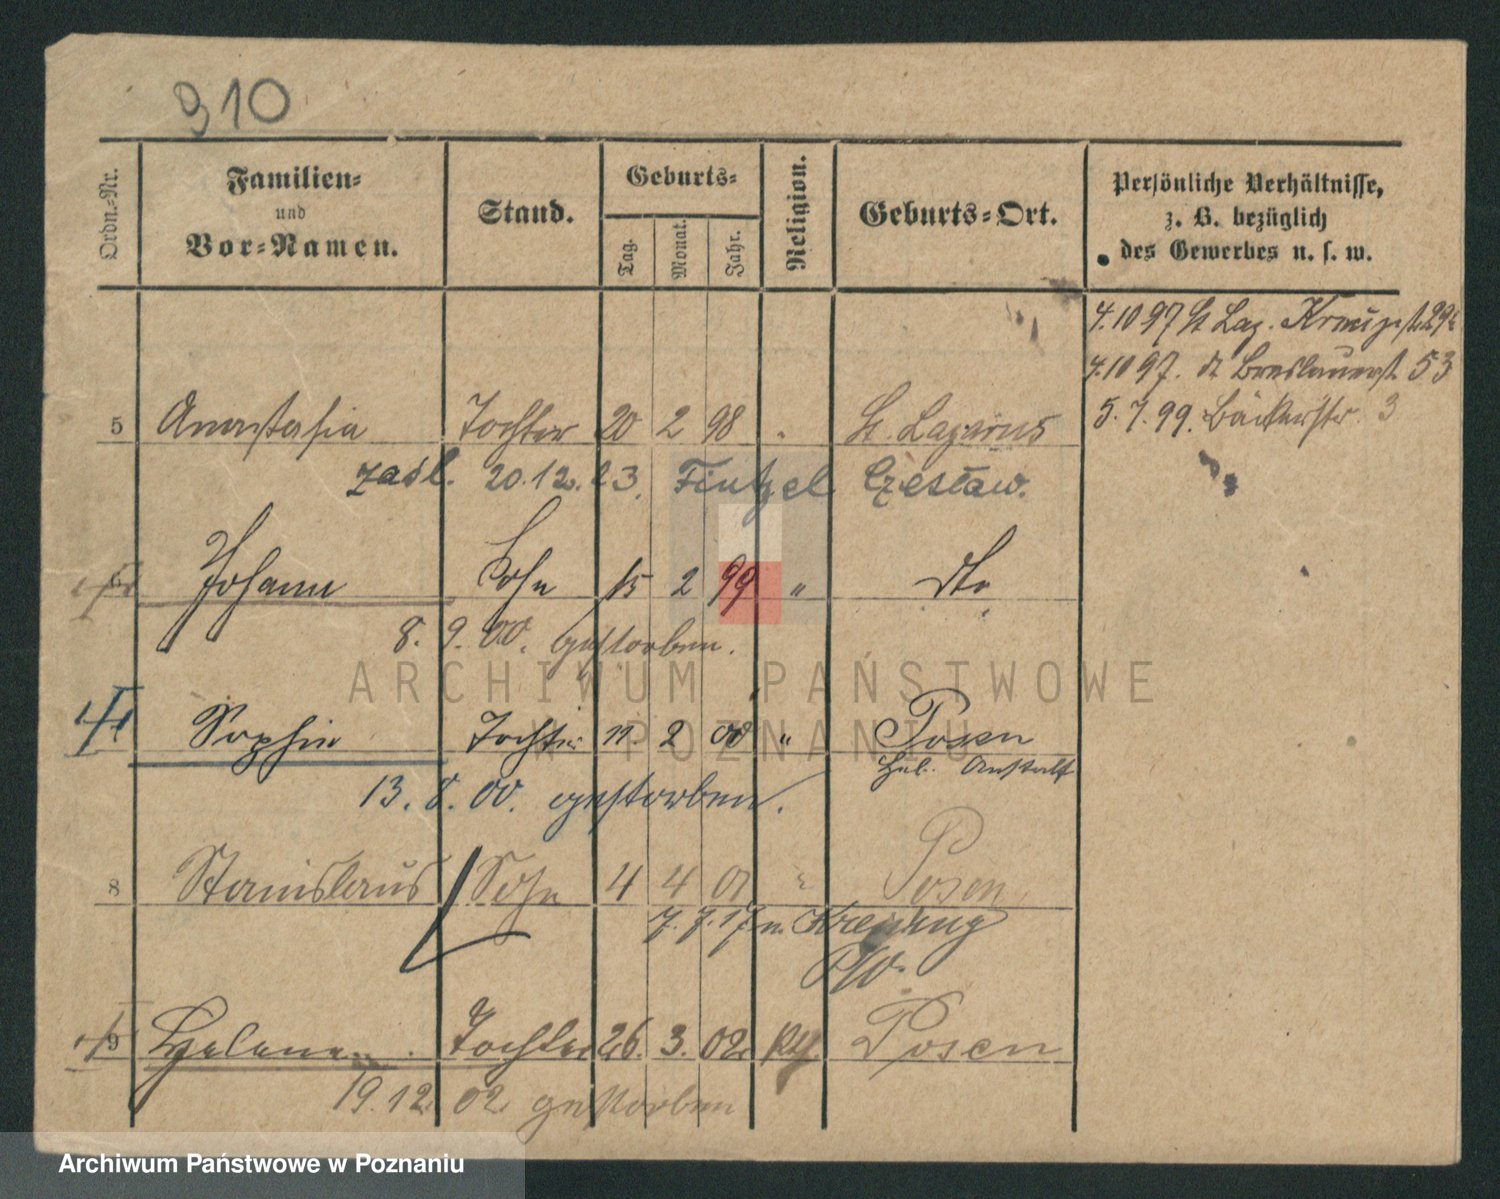 910
Ordn.-Nr.
Familien-
und
Vor-Namen.
Stand.
Geburts-
Tag.
Monat.
Jahr.
Religion.
Geburts-Ort.
Persönliche Verhältnisse,
z. B. bezüglich
des Gewerbes u. s. w.
4.10 97 St Laz. Kreuzstr
4.10 97. dt Breslauerst 53
5.7.99. Bäckerstr. 3
5 Anastasia Tochter 20 2 98 " St. Lazarus
zaśl. 20.12.23. Fintzel Czesław.
6 Johann Sohn 15 2 99 " dto
8. 9. 00. gestorben.
Sophie Tochter 11. 2 00 " Posen
Anstalt
13. 8. 00. gestorben.
8 Stanislaus Sohn 4 4 01 " Posen
7. 7. 17 n.
9 Helene Tochter 26. 3. 02 kth Posen
19. 12. 02 gestorben
ARCHIWUM PAŃSTWOWE
W POZNANIU
Archiwum Państwowe w Poznaniu